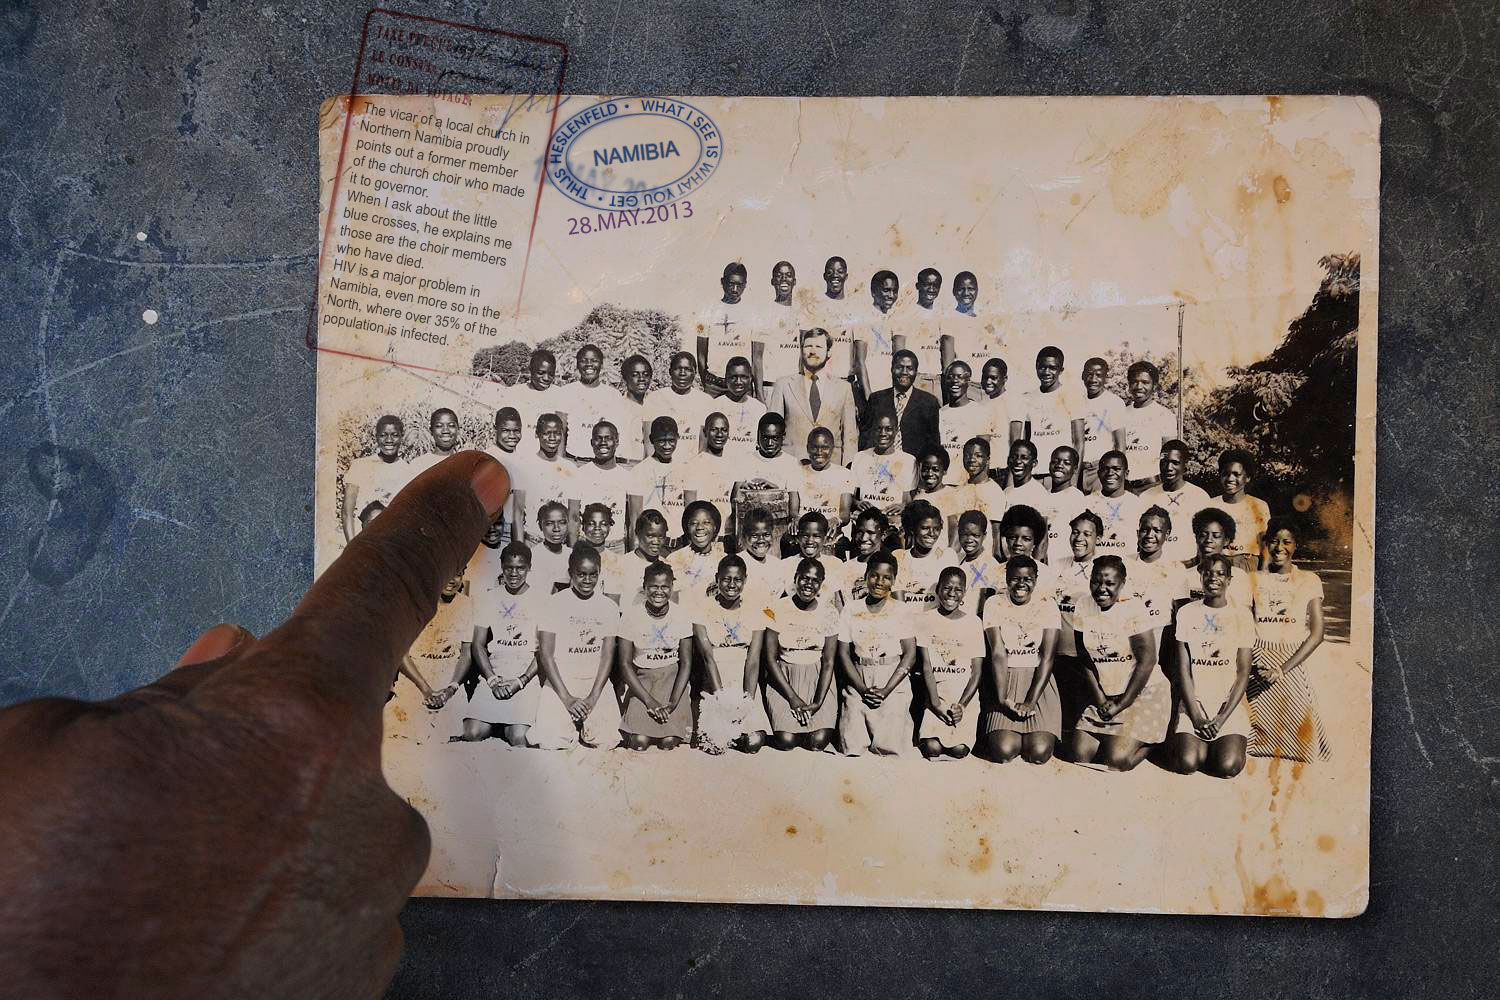 TAXE PERÇUE
LE CONSUL
MOTIF DU VOYAGE:
The vicar of a local church in
Northern Namibia proudly
points out a former member
of the church choir who made
it to governor.
When I ask about the little
blue crosses, he explains me
those are the choir members
who have died.
HIV is a major problem in
Namibia, even more so in the
North, where over 35% of the
population is infected.
THIJS HESLENFELD • WHAT I SEE IS WHAT YOU GET •
NAMIBIA
28.MAY.2013
KAVANGO
KAVANGO
KAVANGO
KAVANGO
KAVANGO
KAVANGO
KAVANGO
KAVANGO
KAVANGO